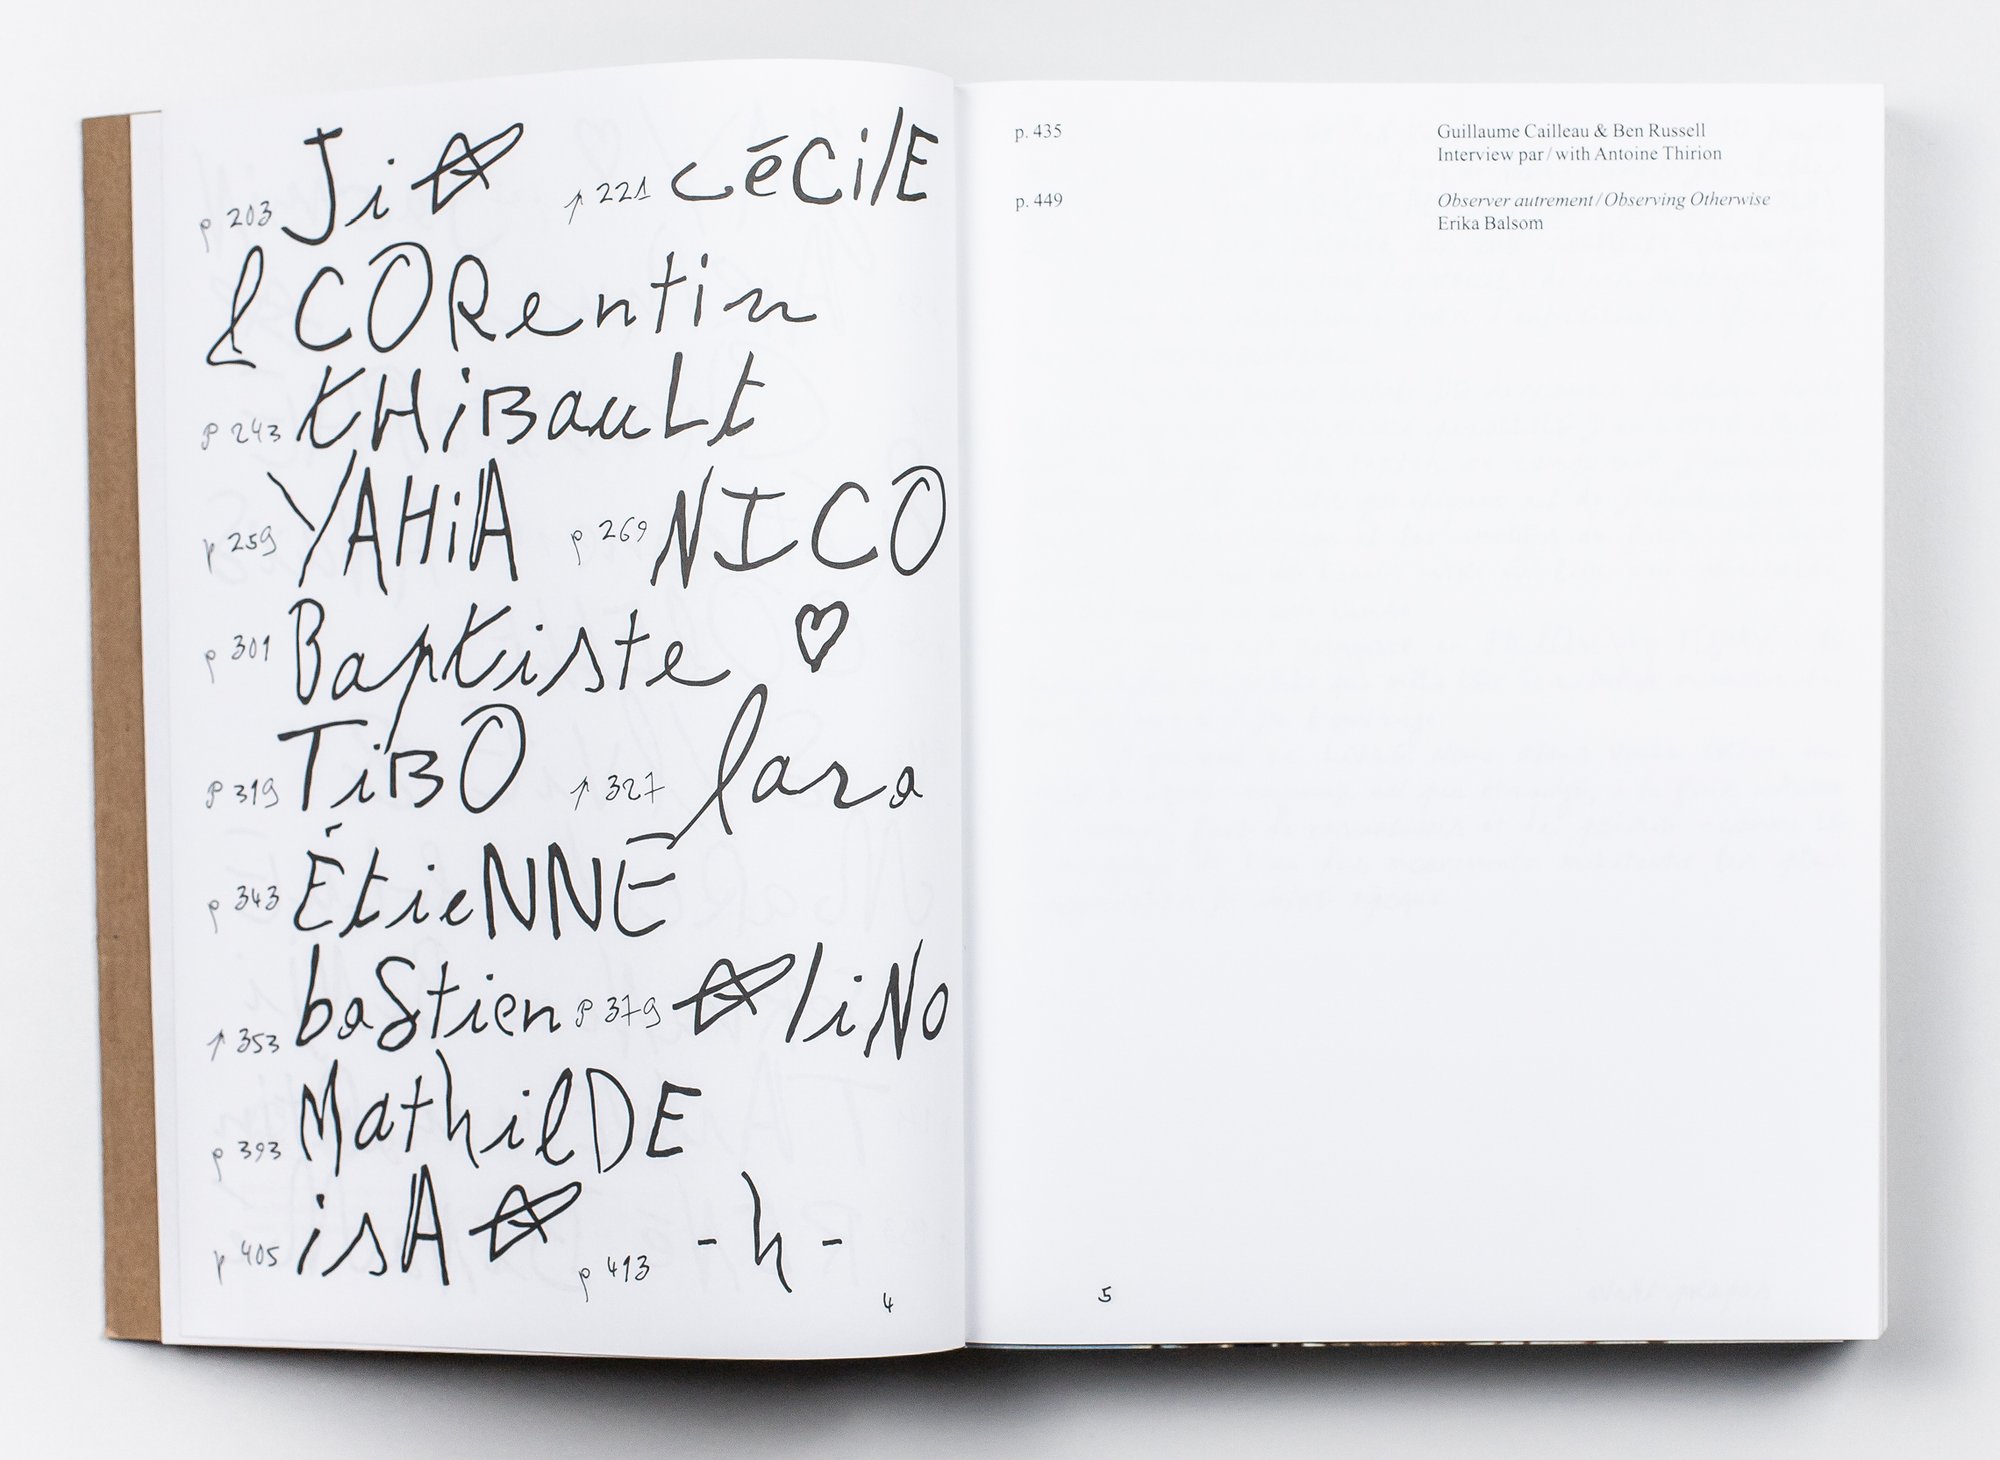 p 203 Ji☆ ↑ 221 CéCilE
& CORentin
p 243 tHiBauLt
p 259 YAHiA p 269 NICO
p 301 Baptiste ♡
p 319 TiBO ↑ 327 lara
p 343 ÉtieNNE
↑ 353 baStien p 379 ☆liNo
p 393 MathilDE
p 405 isA☆ p 413 - h -
4
p. 435 Guillaume Cailleau & Ben Russell
Interview par / with Antoine Thirion
p. 449 Observer autrement / Observing Otherwise
Erika Balsom
5